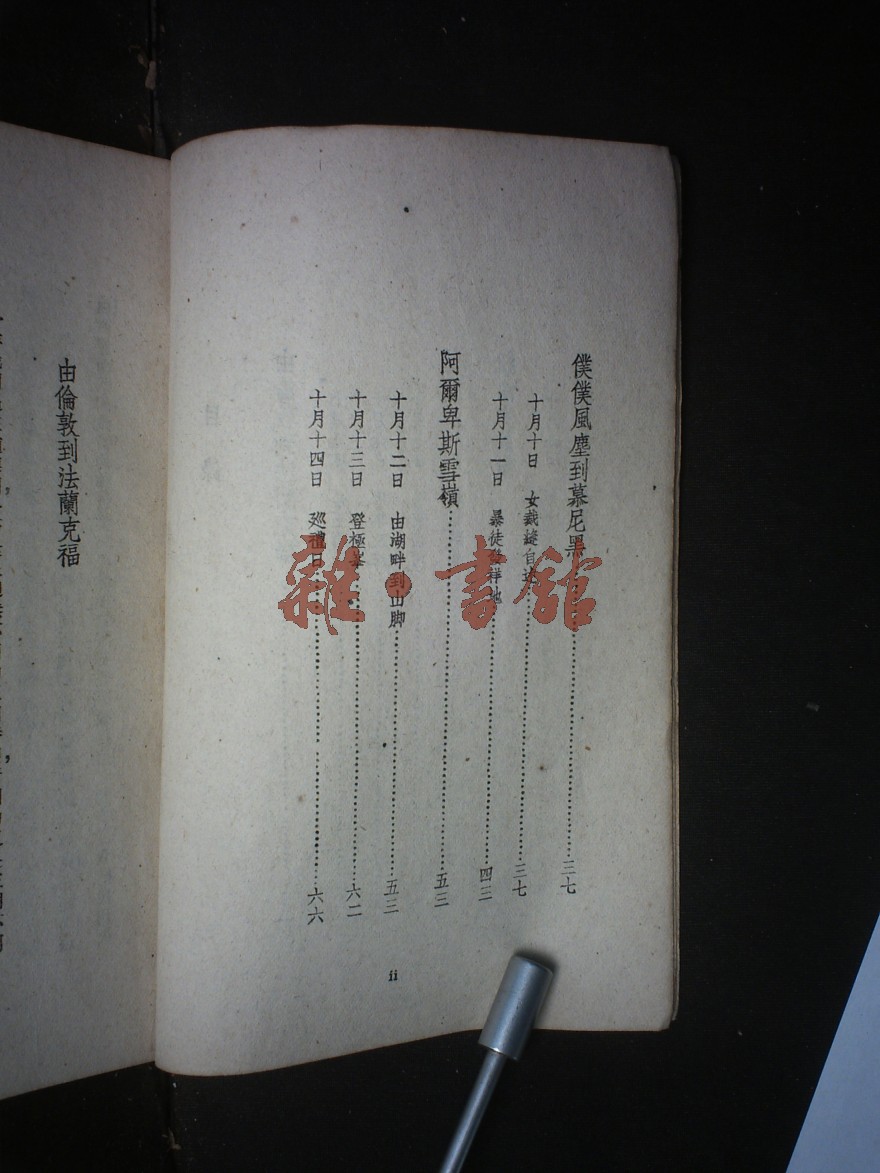 僕僕風塵到慕尼黑……三七
十月十日 女裁縫自述……三七
十月十一日 暴徒發祥地……四三
阿爾卑斯雪嶺……五三
十月十二日 由湖畔到山脚……五三
十月十三日 登極峯……六二
十月十四日 巡禮日……六六
ii
由倫敦到法蘭克福
雜·書館